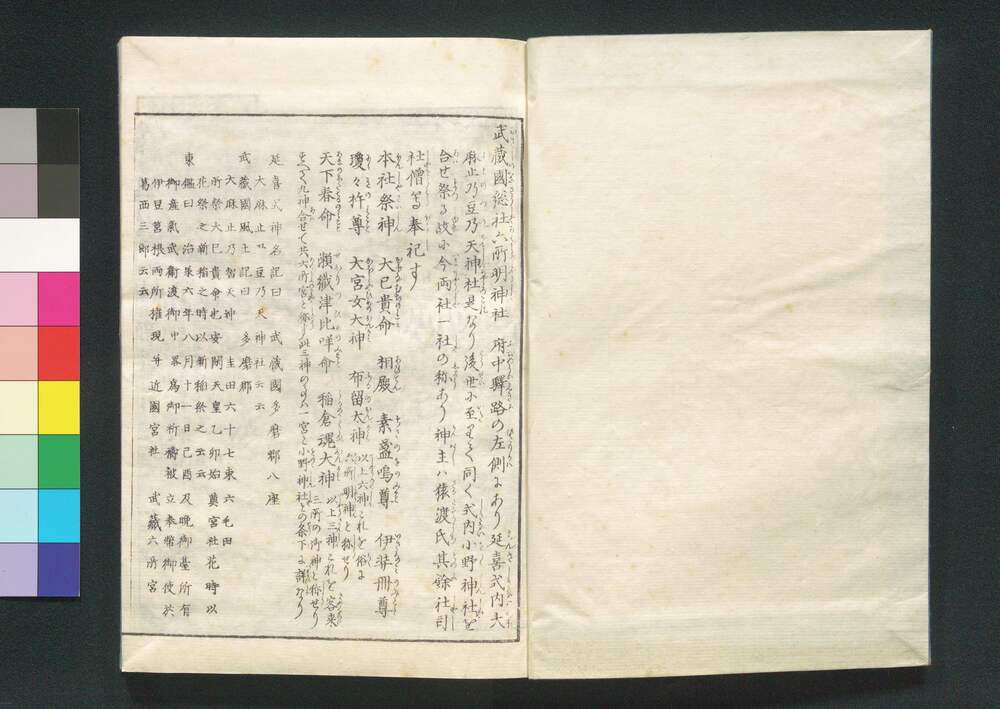 武蔵國総社六所明神社　府中驛路の左側にあり延喜式内大
麻止乃豆乃天神社是なり後世に至りて同く式内小野神社を
合せ祭る故に今両社一社の称あり神主ハ猿渡氏其餘社司
社僧等奉祀す
本社祭神　大己貴命　相殿　素盞嗚尊　伊弉冊尊
瓊々杵尊　大宮女大神　布留大神　以上六神これを俗に六所明神と称せり
天下春命　瀬織津比咩命　稲倉魂大神　以上三神これを客来三所の御神と称せり
九神合せて共六所宮と称し此三神の一宮と小野神社との条下に詳なり
延喜式神名記曰　武蔵國多磨郡八座
大麻止乃豆乃天神社云云
武藏國風土記曰　多磨郡
大麻止乃智天神　圭田六十七束六毛田
所祭大己貴命也安閑天皇乙卯始奠宮社花時以
花祭之新稲之時以新稲祭之云云
東鑑曰　治承六年八月十一日己酉及晩御臺所有
御産氣武衛渡御中畧為御祈禱被立奉幣御使於
伊豆筥根両所権現并近國宮社　武蔵六所宮
葛西三郎云云